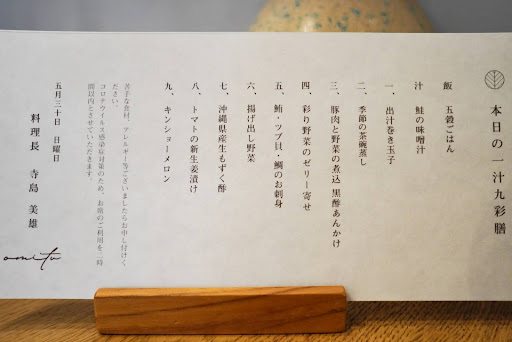 本日の一汁九彩膳
飯 五穀ごはん
汁 鮭の味噌汁
一、出汁巻き玉子
二、季節の茶碗蒸し
三、豚肉と野菜の煮込 黒酢あんかけ
四、彩り野菜のゼリー寄せ
五、鮪・ツブ貝・鯛のお刺身
六、揚げ出し野菜
七、沖縄県産生もずく酢
八、トマトの新生姜漬け
九、キンショーメロン
苦手な食材、アレルギー等ございましたらお申し付けく
ださい。
コロナウイルス感染症対策のため、お席のご利用を二時
間以内とさせていただきます。
五月三十日 日曜日
料理長 寺島 美雄
omitu